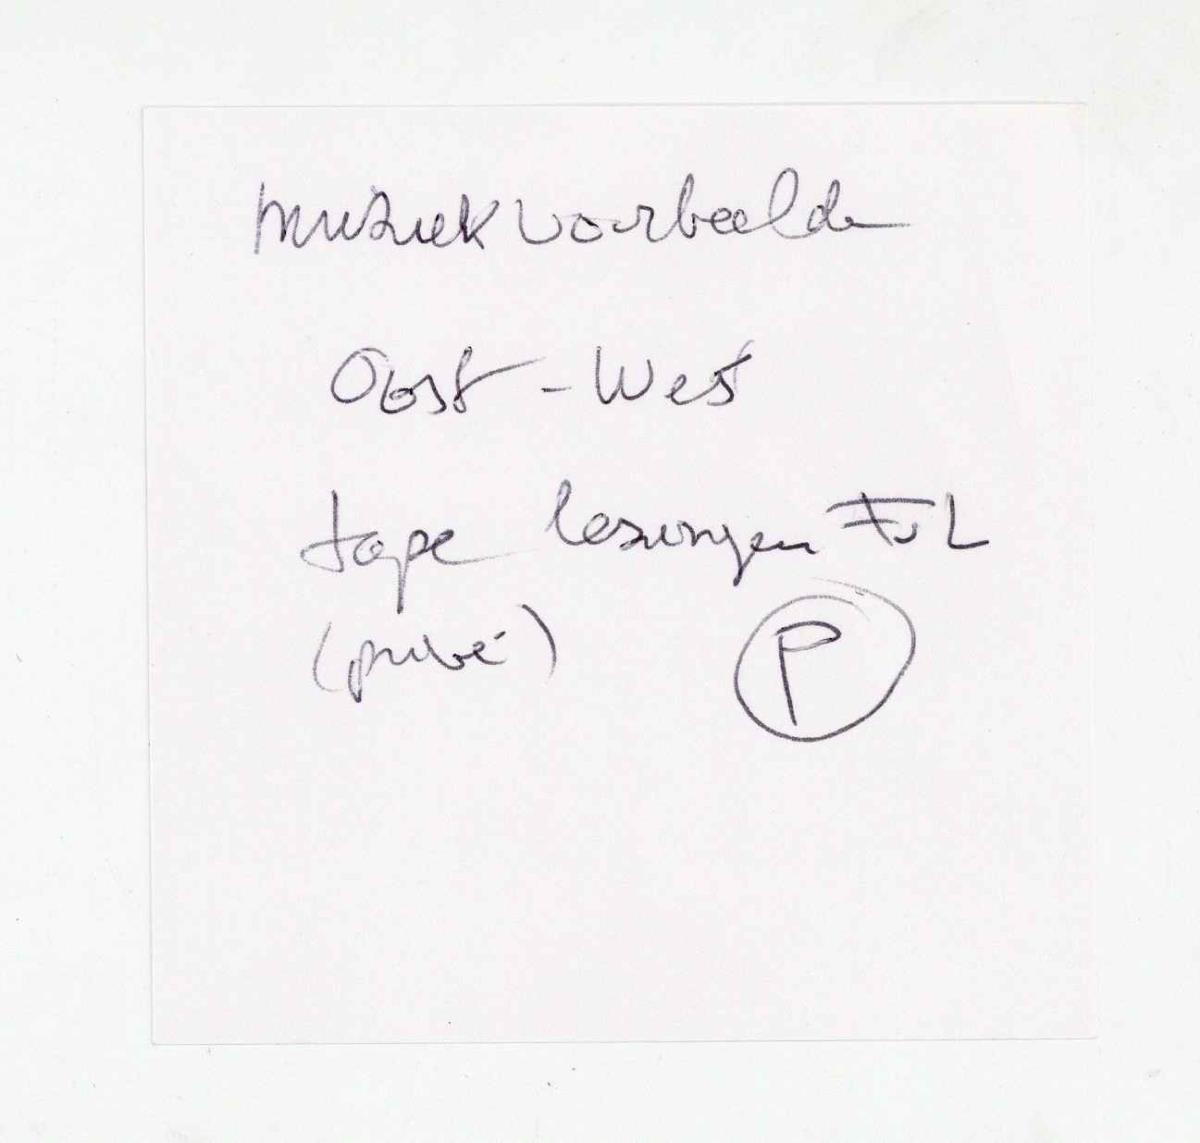 muziekvoorbeelden
Oost - West
tape lezingen FvL
(privé)
P